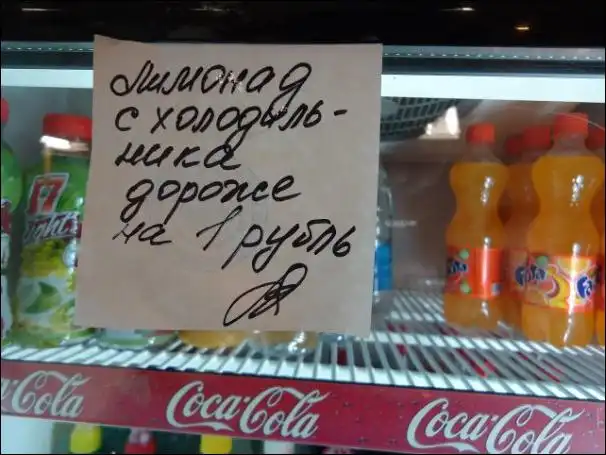 Лимонад
с холодиль-
ника
дороже
на 1 рубль
Fanta
Coca-Cola
Coca-Cola
Coca-Cola